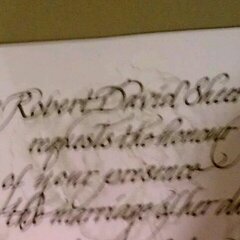 Robert David Sheer
requests the honour
of your presence
the marriage of her